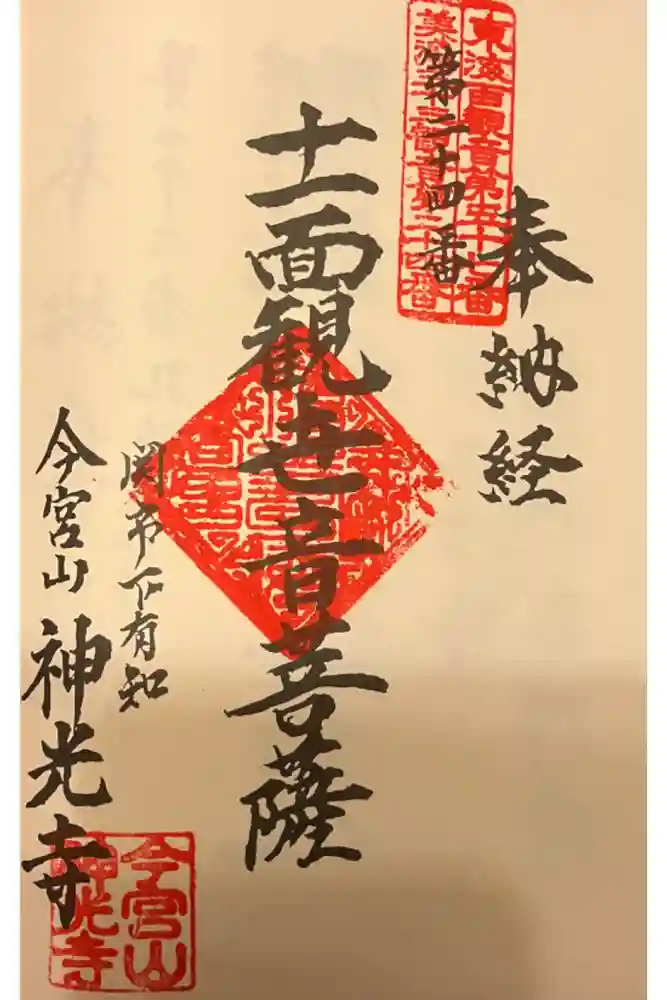 奉納経
第二十四番
東海百観音第五十七番
美濃三十三観音第二十四番
十一面観世音菩薩
関市下有知
今宮山 神光寺
今宮山
神光寺